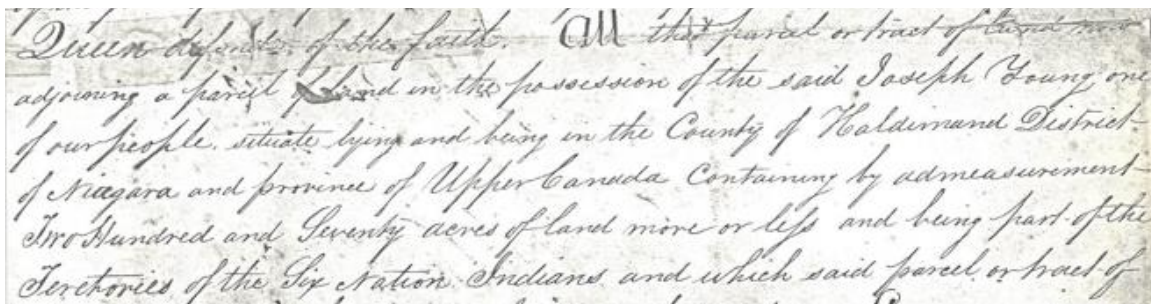 Queen defender of the faith. All that parcel or tract of land now
adjoining a parcel of land in the possession of the said Joseph Young one
of our people. situate lying and being in the County of Haldimand District
of Niagara and province of Upper Canada Containing by admeasurement
Two Hundred and Seventy acres of land more or less and being part of the
Terrhories of the Six Nation Indians and which said parcel or tract of